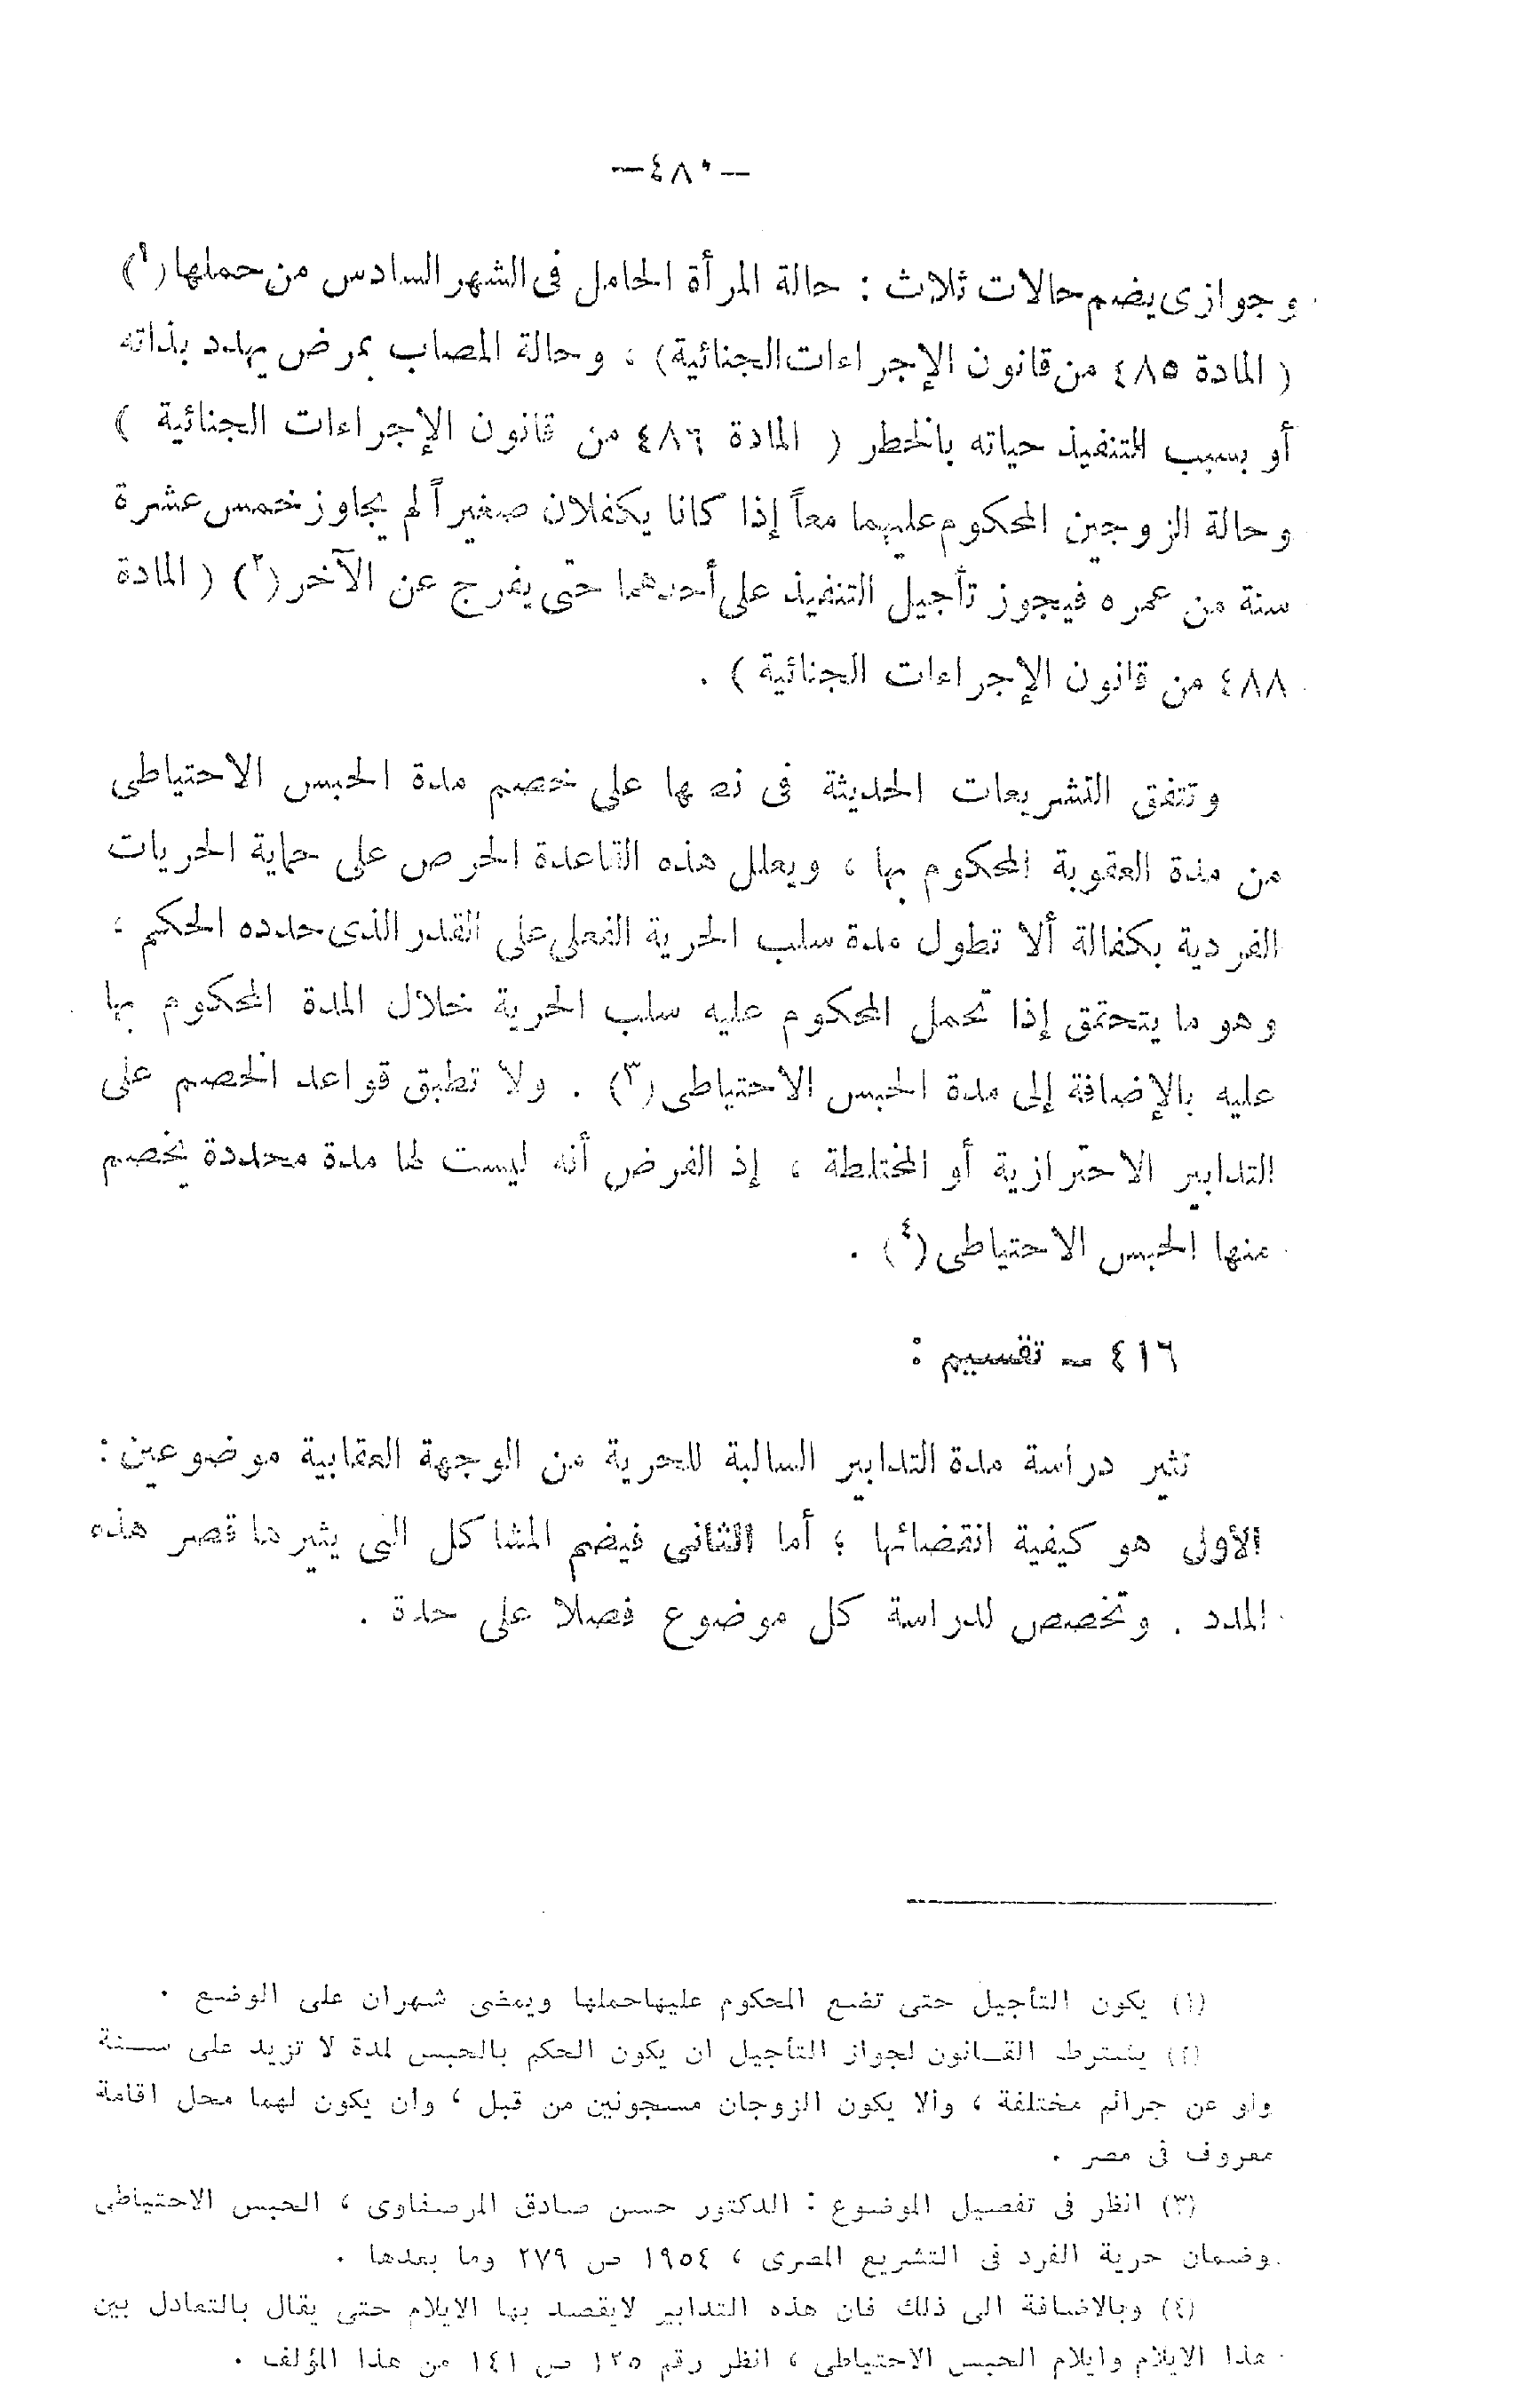 —٤٨٠—
وجوازى يضم حالات ثلاث : حالة المرأة الحامل فى الشهر السادس من حملها(١)
( المادة ٤٨٥ من قانون الإجراءات الجنائية) ، وحالة المصاب بمرض يهدد بذاته
أو بسبب التنفيذ حياته بالخطر ( المادة ٤٨٦ من قانون الإجراءات الجنائية )
وحالة الزوجين المحكوم عليهما معاً إذا كانا يكفلان صغيراً لم يجاوز خمس عشرة
سنة من عمره فيجوز تأجيل التنفيذ على أحدهما حتى يفرج عن الآخر(٢) ( المادة
٤٨٨ من قانون الإجراءات الجنائية ) .
وتتفق التشريعات الحديثة فى نصها على خصم مدة الحبس الاحتياطى
من مدة العقوبة المحكوم بها ، ويعلل هذه القاعدة الحرص على حماية الحريات
الفردية بكفالة ألا تطول مدة سلب الحرية الفعلى على القدر الذى حدده الحكم ،
وهو ما يتحقق إذا تحمل المحكوم عليه سلب الحرية خلال المدة المحكوم بها
عليه بالإضافة إلى مدة الحبس الاحتياطى(٣) . ولا تطبق قواعد الخصم على
التدابير الاحترازية أو المختلطة ، إذ الفرض أنه ليست لها مدة محددة يخصم
منها الحبس الاحتياطى(٤) .
٤١٦ – تقسيم :
تثير دراسة مدة التدابير السالبة للحرية من الوجهة العقابية موضوعين :
الأول هو كيفية انقضائها ؛ أما الثانى فيضم المشاكل التى يثيرها قصر هذه
المدد . وتخصص لدراسة كل موضوع فصلا على حدة .
(١) يكون التأجيل حتى تضع المحكوم عليها حملها ويمضى شهران على الوضع .
(٢) يشترط القـانون لجواز التأجيل ان يكون الحكم بالحبس لمدة لا تزيد على سـنة
ولو عن جرائم مختلفة ، والا يكون الزوجان مسجونين من قبل ، وان يكون لهما محل اقامة
معروف فى مصر .
(٣) انظر فى تفصيل الموضوع : الدكتور حسن صادق المرصفاوى ، الحبس الاحتياطى
وضمان حرية الفرد فى التشريع المصرى ، ١٩٥٤ ص ٢٧٩ وما بعدها .
(٤) وبالاضافة الى ذلك فان هذه التدابير لايقصد بها الايلام حتى يقال بالتعادل بين
هذا الايلام وايلام الحبس الاحتياطى ، انظر رقم ١٢٥ ص ١٤١ من هذا المؤلف .